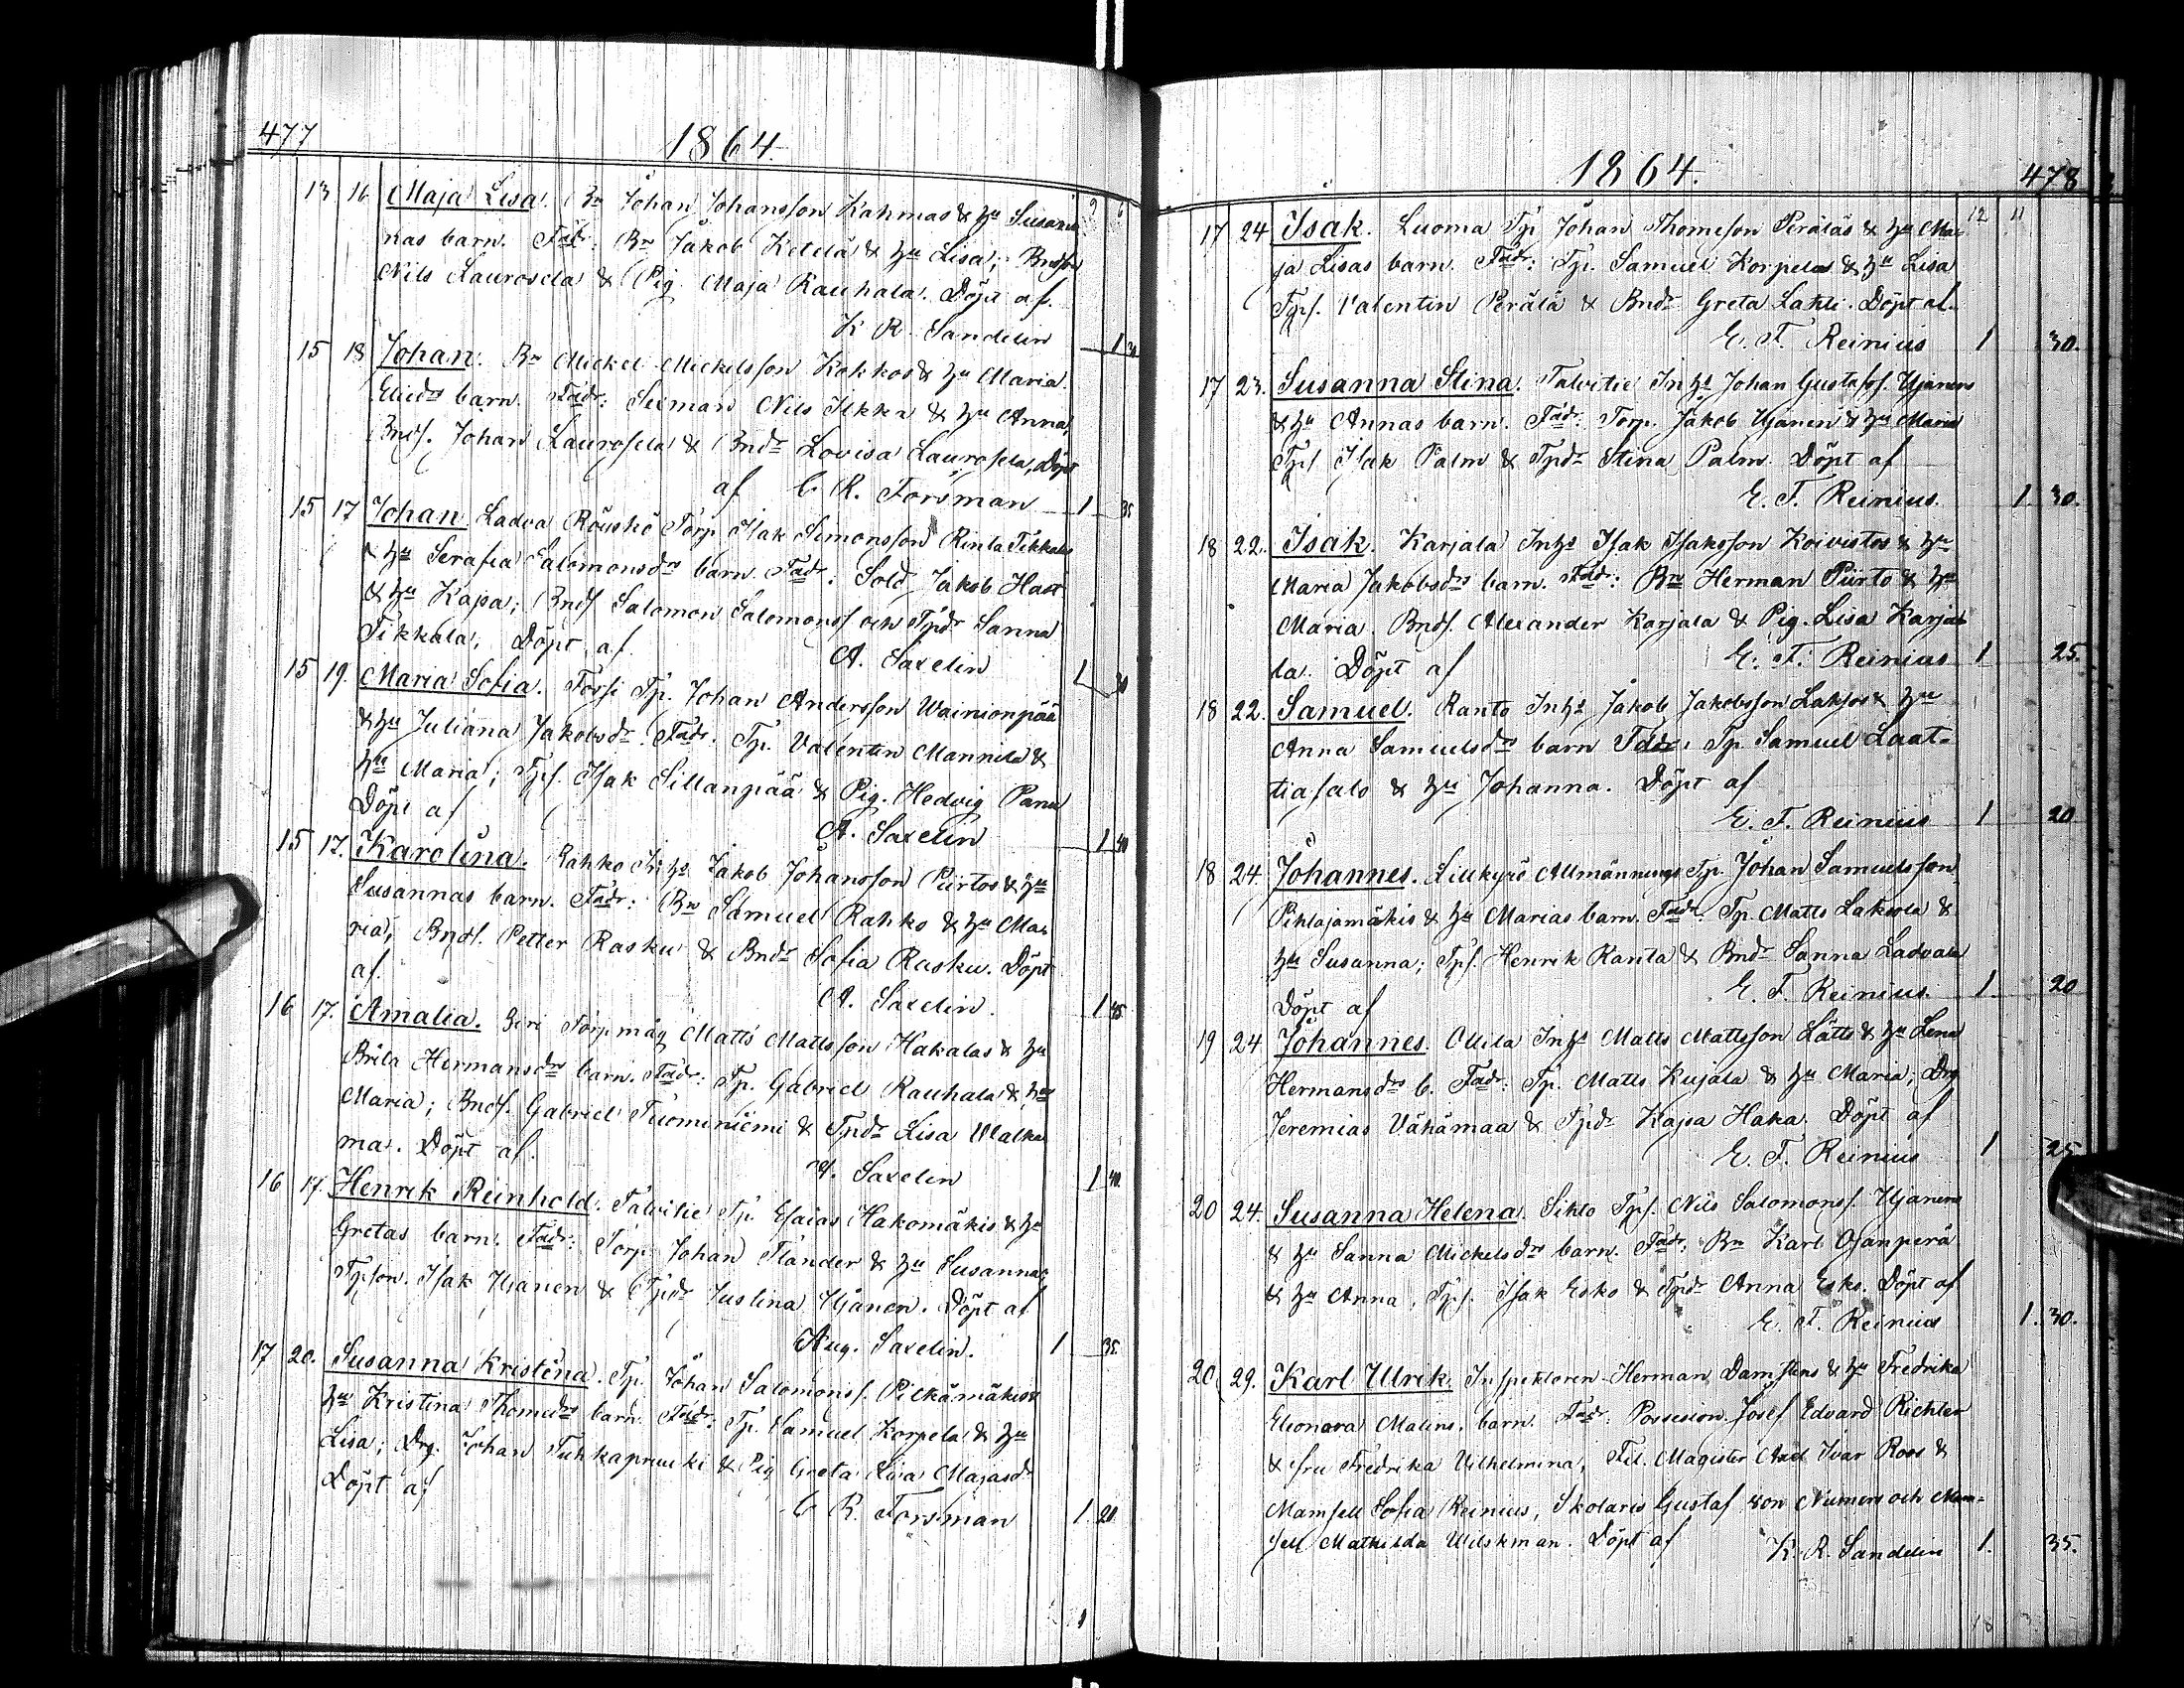 477
1864.
13 16 Maja Lisa. Bn Johan Johansson Kahmas & hu Susan-
nas barn. Fadr: Bn Jakob Ketelä & hu Lisa; Bndson
Nils Laurosela & Pig. Maja Rauhala. Döpt af.
K R Sandelin 1 30
15 18 Johan. Bn Mickel Mickelsson Kokkos & hu Maria
Eliedrs barn. Fadr: Sexman Nils Ilkka & hu Anna,
Bnds. Johan Laurosela & Bndr Lovisa Laurosela, Döpt
af C R. Forsman 1 35
15 17 Johan Ladva Röuskö Torp. Isak Simonsson Rinta Tikkalas
& hu Serafia Salomonsdrs barn. Fadr: Sold. Jakob Hast
& hu Kajsa; Bnds Salomon Salomonss och Tpdr Sanna
Tikkala. Döpt af.
A. Saxelin 1 30
15 19. Maria Sofia. Torsi Tp. Johan Andersson Wainionpää
& hu Juliana Jakobsdr. Fadr: Tp. Valentin Mannila &
hu Maria; Tps. Isak Sillanpää & Pig. Hedvig Panu
Döpt af
A. Saxelin 1 40
15 17. Karolina. Rahko Inhs Jakob Johansson Piirtos & hu
Susannas barn. Fadr: Bn Samuel Rahko & hu Ma-
ria; Bnds. Petter Rasku & Bndr Sofia Rasku. Döpt
af.
A. Saxelin. 1 45
16 17. Amalia. Torp.måg Matts Mattsson Hakalas & hu
Brita Hermansdrs barn. Fadr: Tp. Gabriel Rauhala & hu
Maria; Bnds. Gabriel Tuominiemi & Tpdr Lisa Walka
ma. Döpt af.
A. Saxelin 1 40.
16 17. Henrik Reinhold. Talvitie Tp. Esaias Hakomäkis & hu
Gretas barn. Fadr: Torp. Johan Flander & hu Susanna;
Tpson. Isak Ujanen & Tpdr Justina Ujanen. Döpt af
Aug. Saxelin. 1 35.
17 20. Susanna Kristina. Tp. Johan Salomonss. Pitkämäkis &
hu Kristina Thomedrs barn. Fadr: Tp. Samuel Korpela & hu
Lisa; Drg. Johan Tuhkapruuki & Pig Greta Lisa Majasdr
Döpt af
C R. Forsman 1. 20.
1864. 478
12 11
17 24 Isak. Luoma Tp Johan Thomsson Peräläs & hu Ma-
ja Lisas barn. Fadr: Tp. Samuel Korpela & hu Lisa
Tps. Valentin Perälä & Bndr Greta Lahti. Döpt af.
E. F. Reinius 1 30.
17 23. Susanna Stina. Talvitie Inhs Johan Gustafss. Ujanens
& hu Annas barn. Fadr: Torp. Jakob Ujanen & hu Maria
Tps Isak Palm & Tpdr Stina Palm. Döpt af
E. F. Reinius. 1. 30.
18 22. Isak. Karjala Inhs Isak Isaksson Koivistos & hu
Maria Jakobsdrs barn. Fadr: Bn Herman Piirto & hu
Maria. Bnds. Alexander Karjala & Pig. Lisa Karja-
la. Döpt af E. F. Reinius 1 25.
18 22. Samuel. Ranto Inhs Jakob Jakobsson Laksos & hu
Anna Samuelsdrs barn Fadr: Tp Samuel Laat-
tiasalo & hu Johanna. Döpt af
E. F. Reinius 1 20
18 24. Johannes. Lillkyrö Allmännings Tp. Johan Samuelsson
Pihlajamäkis & hu Marias barn. Fadr: Tp. Matts Laksola &
hu Susanna; Tps. Henrik Ranta & Bndr Sanna Ladvala
Döpt af E. F. Reinius. 1. 20
19 24. Johannes. Ollila Inhs Matts Mattsson Lätts & hu Lena
Hermansdrs b. Fadr: Tp. Matts Kujala & hu Maria; Drg
Jeremias Vähämaa & Tpdr Kajsa Haka. Döpt af
E. F. Reinius 1 25
20 24. Susanna Helena. Sihto Tps. Nils Salomonss. Ujanens
& hu Sanna Mickelsdrs barn. Fadr: Bn Karl Ojanperä
& hu Anna, Tps. Isak Esko & Tpdr Anna Esko. Döpt af
E. F. Reinius 1. 30.
20 29. Karl Ulrik. Inspektoren Herman Damstens & hu Fredrika
Eleonora Malins, barn. Fadr: Possesion. Josef Edvard Richter
& fru Fredrika Vilhelmina, Fil. Magister Axel Ivar Roos &
Mamsell Sofia Reinius, Skolaris Gustaf von Numers och Mam-
sell Mathilda Wilskman. Döpt af K. R. Sandelin 1. 35.